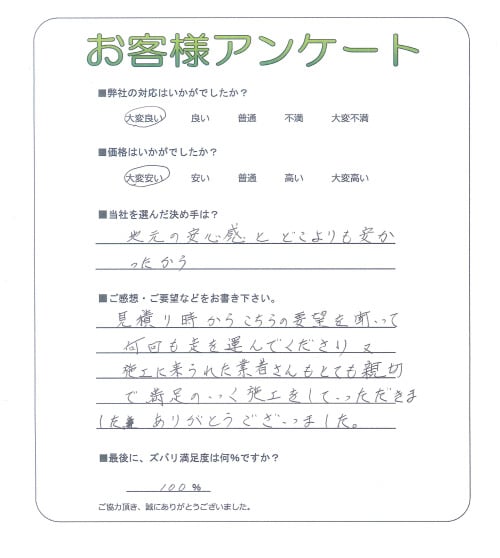 お客様アンケート
■弊社の対応はいかがでしたか？
大変良い 良い 普通 不満 大変不満
■価格はいかがでしたか？
大変安い 安い 普通 高い 大変高い
■当社を選んだ決め手は？
地元の安心感と どこよりも安か
ったから
■ご感想・ご要望などをお書き下さい。
見積り時からこちらの要望を
何回も足を運んでくださり 又
施工に来られた業者さんもとても親切
で満足のいく施工をしていただきま
した。ありがとうございました。
■最後に、ズバリ満足度は何％ですか？
100％
ご協力頂き、誠にありがとうございました。